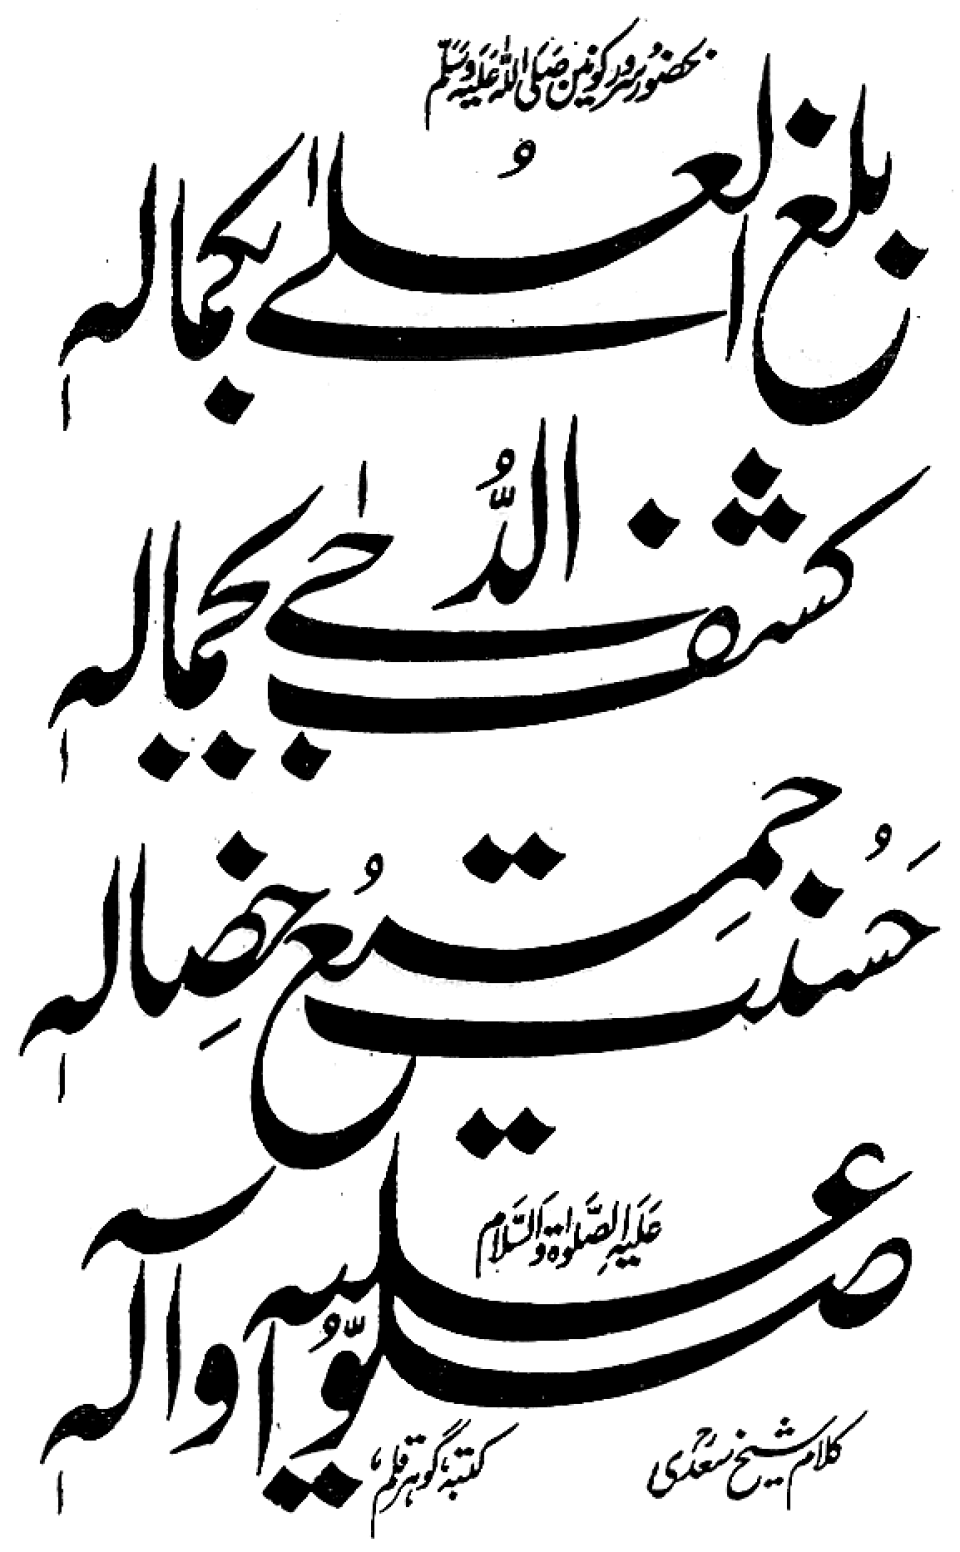 بحضور سرور کونین صَلَی اللہُ عَلَیہِ وَسَلّم
بلغ العُلےٰ بکمالہٖ
کشف الدُّجےٰ بجمالہٖ
حَسُنت جمِیعُ خِصالہٖ
صلّوُا علیہ وآلہٖ
عَلَیہِ الصَّلوٰۃ وَالسَّلام
کلام شیخ سعدیؒ
کتبہٗ گوہر قلم